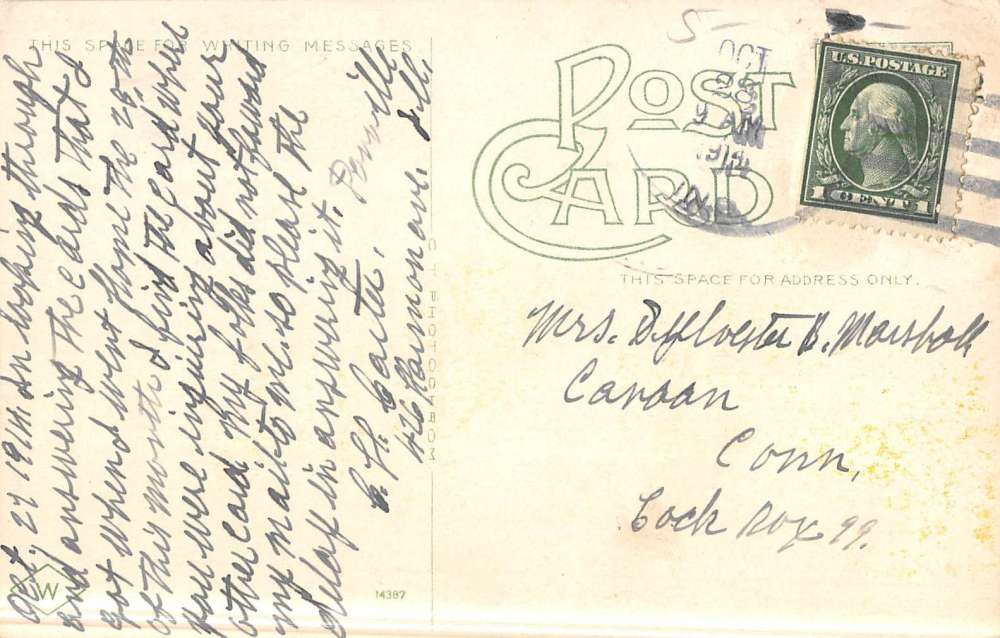 THIS SPACE FOR WRITING MESSAGES
Oct, 27 1914 In looking through
and answering the cards that I
got when I went home the 25, th
of this month I find the card where
you were inquiring about your
other card My folks did not forward
my mail to me. so please the
delay in answering it.
C. H. Carter,
426 Harmon ave.
Danville
Ill,
C. T. PHOTOCHROM
W
14387
POST CARD
OCT
28
9 AM
1914
U.S. POSTAGE
1 CENT 1
THIS SPACE FOR ADDRESS ONLY.
Mrs. Dsylvester B. Marshall
Canaan
Conn,
Lock Box 99.